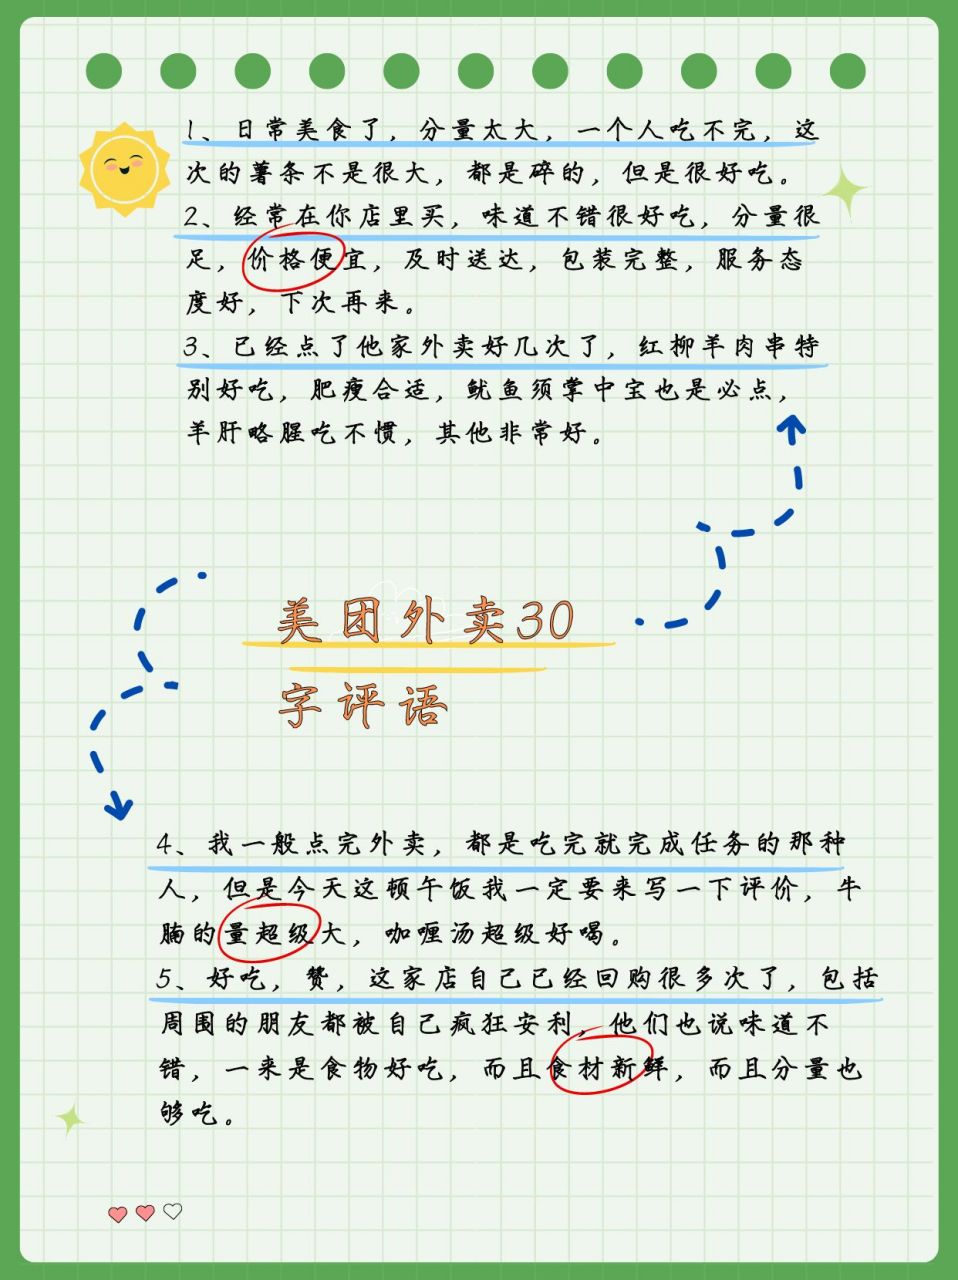 1、日常美食了，分量太大，一个人吃不完，这
次的薯条不是很大，都是碎的，但是很好吃。
2、经常在你店里买，味道不错很好吃，分量很
足，价格便宜，及时送达，包装完整，服务态
度好，下次再来。
3、已经点了他家外卖好几次了，红柳羊肉串特
别好吃，肥瘦合适，鱿鱼须掌中宝也是必点，
羊肝略腥吃不惯，其他非常好。
美团外卖30
字评语
4、我一般点完外卖，都是吃完就完成任务的那种
人，但是今天这顿午饭我一定要来写一下评价，牛
腩的量超级大，咖喱汤超级好喝。
5、好吃，赞，这家店自己已经回购很多次了，包括
周围的朋友都被自己疯狂安利，他们也说味道不
错，一来是食物好吃，而且食材新鲜，而且分量也
够吃。